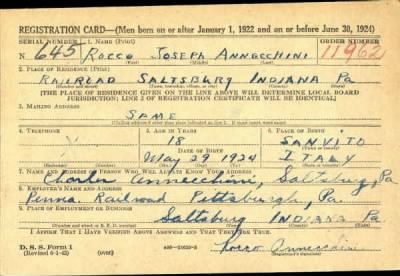 REGISTRATION CARD—(Men born on or after January 1, 1922 and on or before June 30, 1924)
SERIAL NUMBER 1. NAME (Print) ORDER NUMBER
N 645 ROCCO JOSEPH ANNECCHINI 11962
(First) (Middle) (Last)
2. PLACE OF RESIDENCE (Print)
RAILROAD SALTSBURG INDIANA Pa
(Number and street) (Town, township, village, or city) (County) (State)
[THE PLACE OF RESIDENCE GIVEN ON THE LINE ABOVE WILL DETERMINE LOCAL BOARD
JURISDICTION; LINE 2 OF REGISTRATION CERTIFICATE WILL BE IDENTICAL]
3. MAILING ADDRESS
SAME
4. TELEPHONE 5. AGE IN YEARS 6. PLACE OF BIRTH
18 SANVITO
DATE OF BIRTH
May 29 1924 ITALY
7. NAME AND ADDRESS OF PERSON WHO WILL ALWAYS KNOW YOUR ADDRESS
Annecchini, Saltsburg, Pa
8. EMPLOYER'S NAME AND ADDRESS
Penna. Railroad Pittsburgh, Pa.
9. PLACE OF EMPLOYMENT OR BUSINESS
Saltsburg INDIANA Pa
I AFFIRM THAT I HAVE VERIFIED ABOVE ANSWERS AND THAT THEY ARE TRUE.
D. S. S. Form 1
(over) Rocco Annecchini